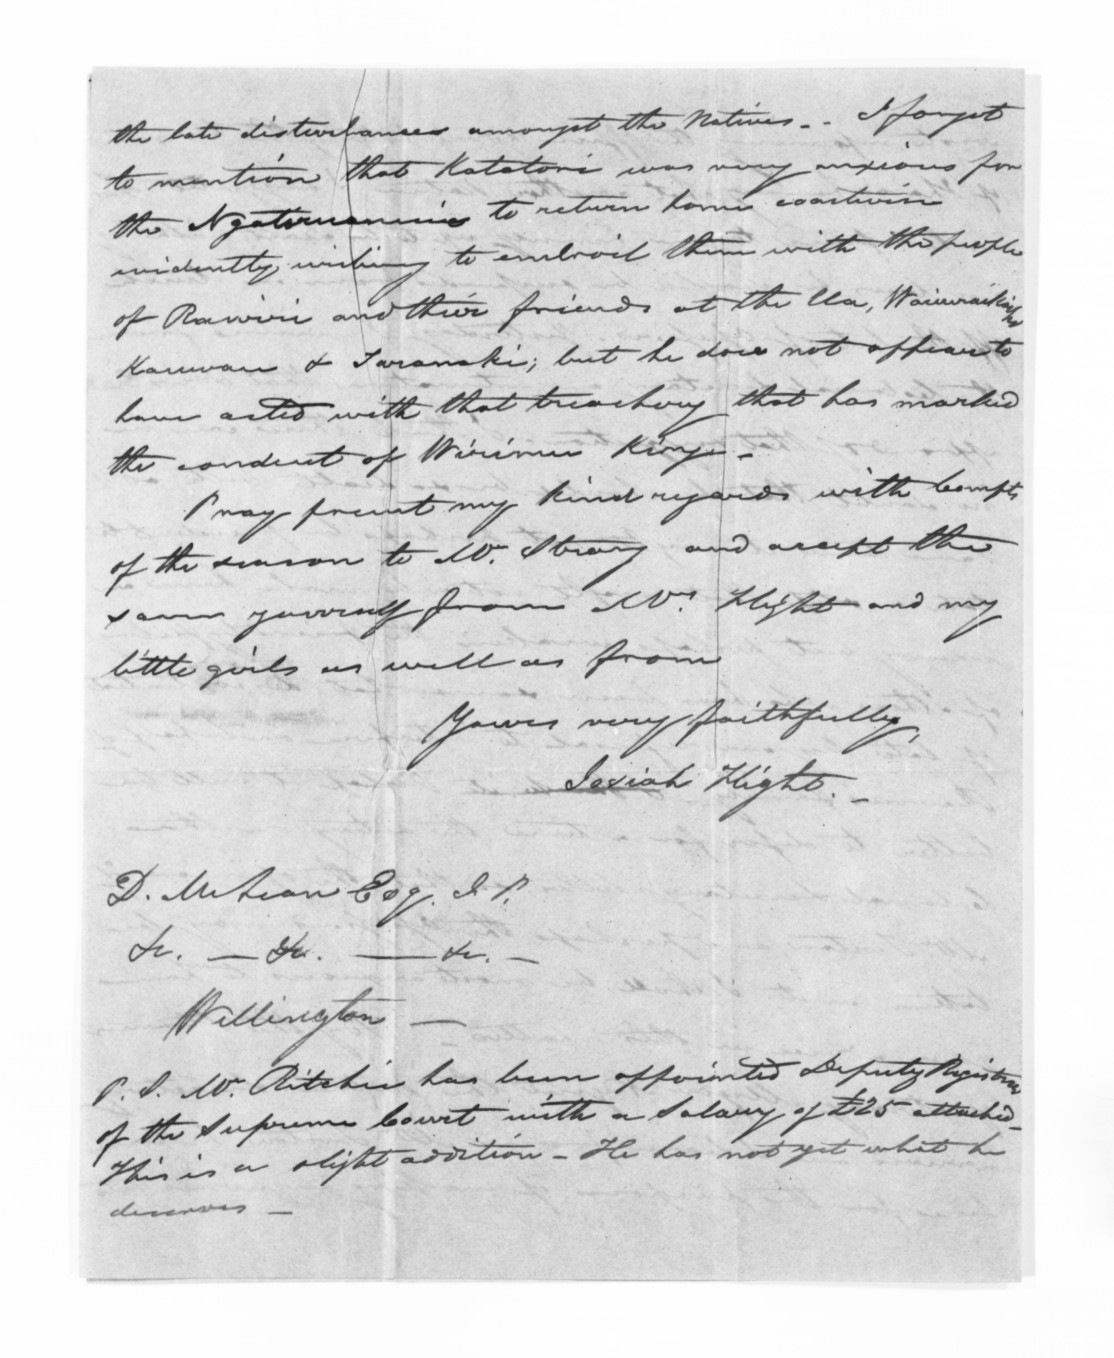 the late disturbances amongst the Natives - . I forgot
to mention that Katatori was very anxious for
the Ngatiruanuis to return home coastwise
evidently wishing to embroil them with the people
of Rawiri and their friends at the Ua,
Kauwau & Taranaki; but he does not appear to
have acted with that treachery that has marked
the conduct of Wirimu King. -
Pray present my kind regards with Compts
of the season to Mr. Strang and accept the
same yourself from Mrs. Flight and my
little girls as well as from
Yours very faithfully,
Josiah Flight. -
D. McLean Esq. J. P.
&c. — &c. — &c. -
Wellington —
P. S. Mr. Ritchie has been appointed Deputy Registrar
of the Supreme Court with a Salary of £25 attached -
This is a slight addition - He has not yet what he
deserves -